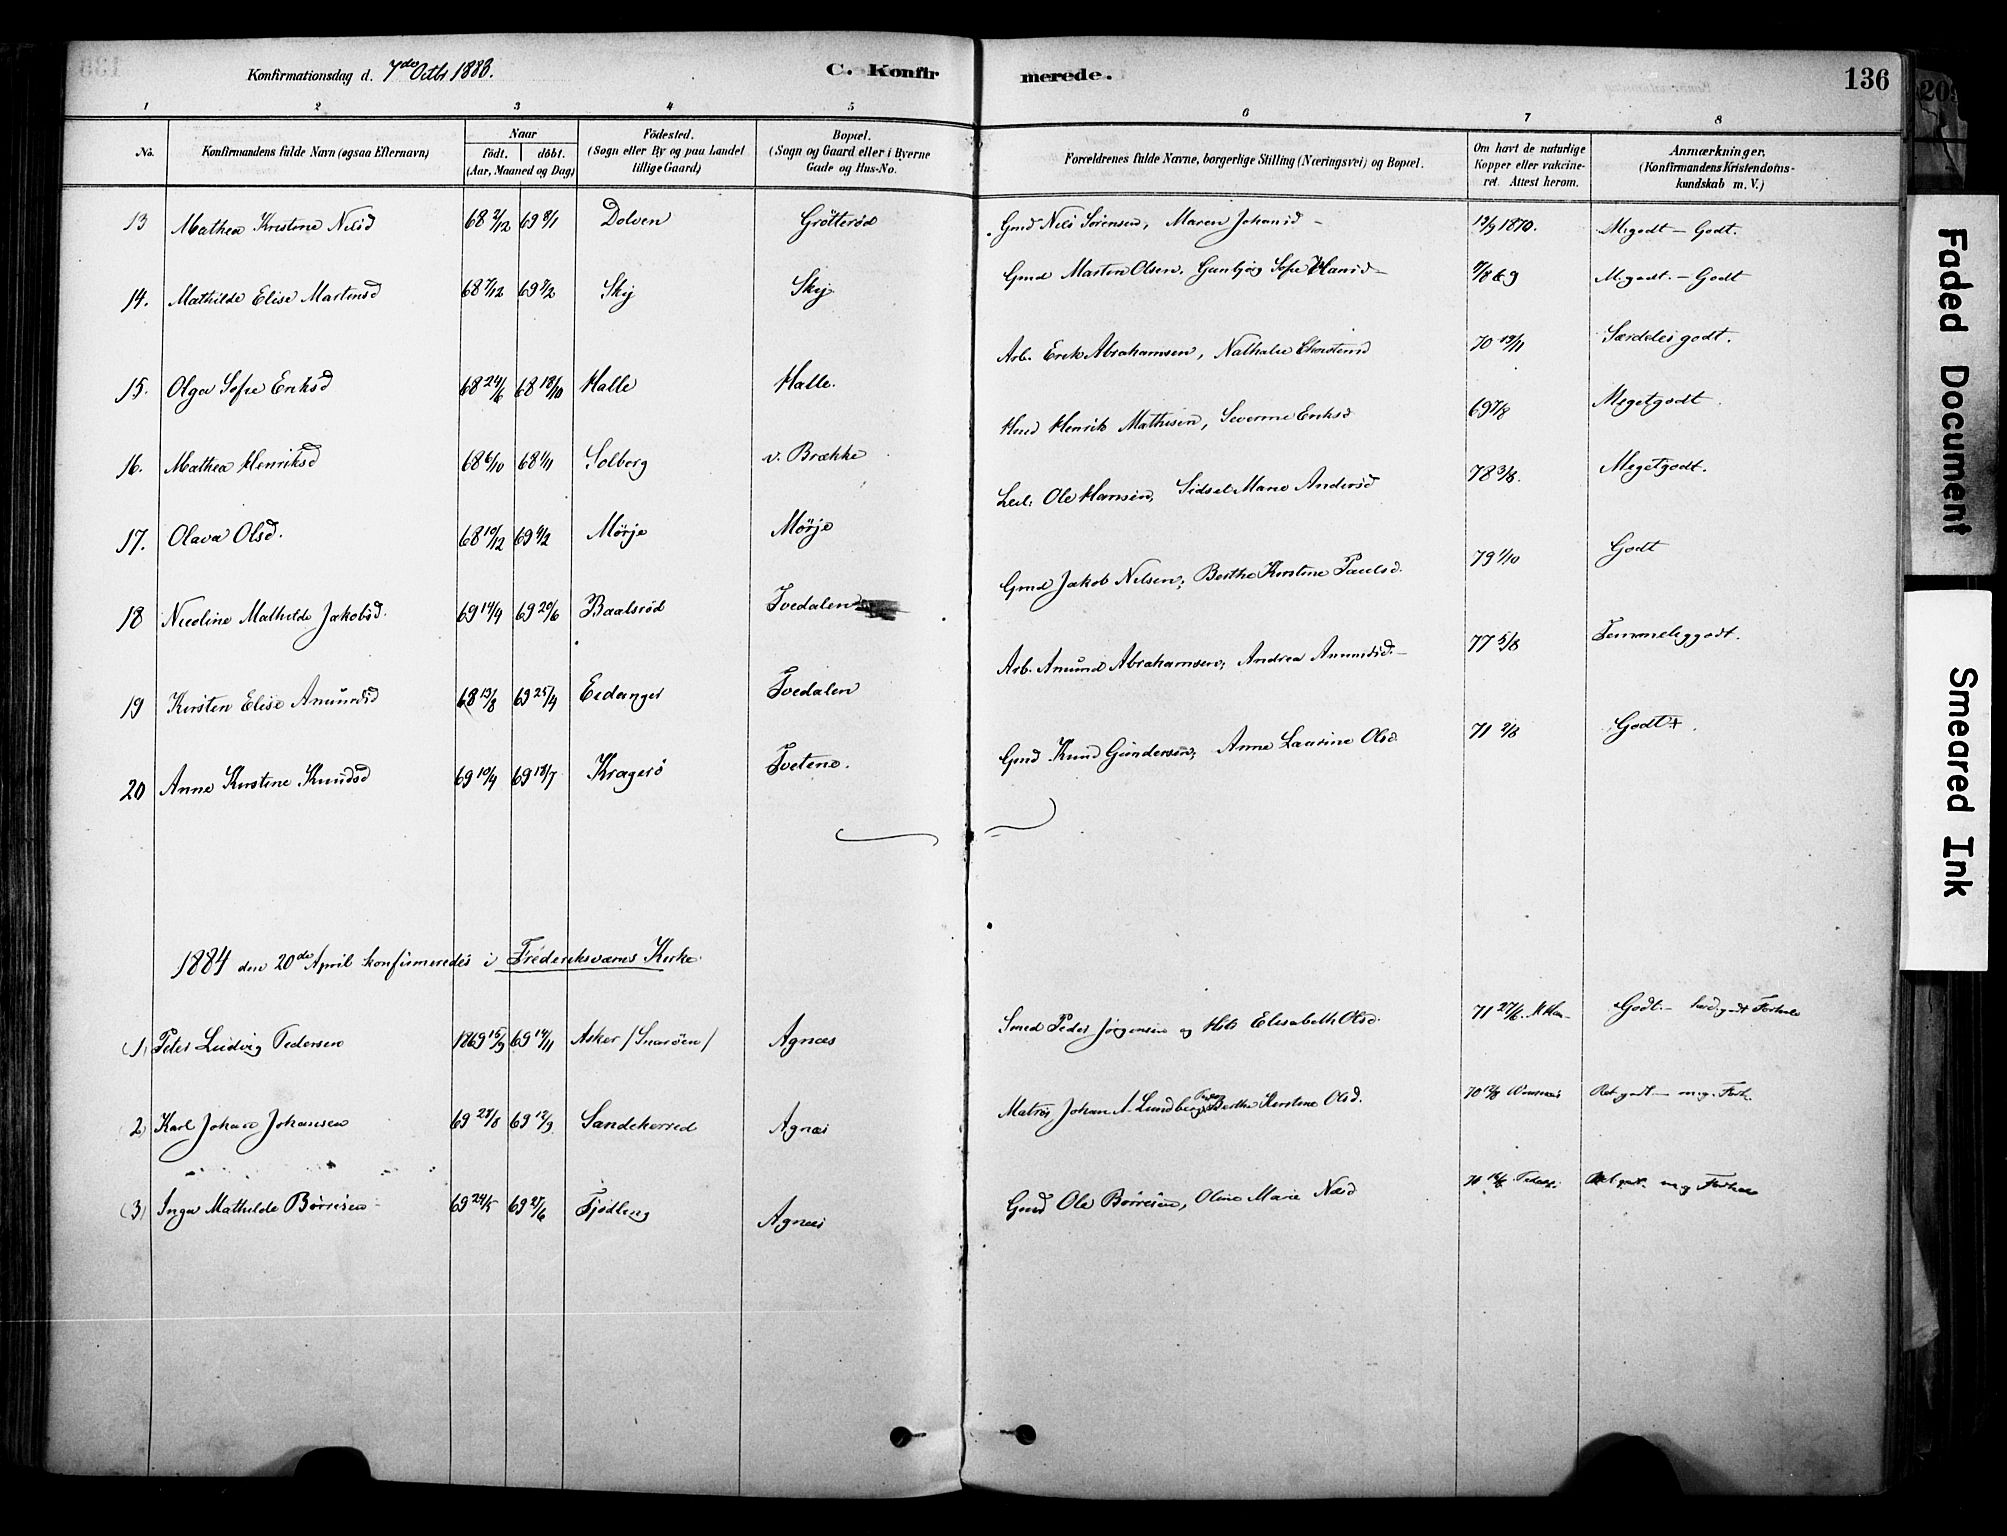 Konfirmationsdag d. 7de Octbr 1883.
C. Konfirmerede.
136
1 2 3 4 5 6 7 8
No. Konfirmandens fulde Navn (ogsaa Efternavn) Naar født. døbt. (Aar, Maaned og Dag) Fødested. (Sogn eller By og paa Landet tillige Gaard) Bopæl. (Sogn og Gaard eller i Byerne Gade og Hus-No. Forældrenes fulde Navne, borgerlige Stilling (Næringsvei) og Bopæl. Om havt de naturlige Kopper eller vakcineret. Attest herom. Anmærkninger. (Konfirmandens Kristendomskundskab m. V.)
13 Mathea Kristine Nilsd 68 2/12 69 8/1 Dolven Grötteröd Gmd Nils Sörensen, Maren Johansd - 12/9 1870. M.godt - Godt.
14. Mathilde Elise Martinsd 68 7/12 69 2/2 Skij Skij Gmd Marten Olsen. Gunbjøg Sofie Hansd - 7/8 69 M.godt. - Godt
15. Olga Sofie Eriksd 68 24/6 68 18/10 Halle Halle. Arb. Erik Abrahamsen, Nathalie 70 19/11 Særdeles godt.
16. Mathea Henriksd 68 6/10 68 1/11 Solberg v. Brække Henrik Mathisen, Severine Eriksd 69 7/8 Megetgodt.
17. Olava Olsd. 68 10/12 69 4/2 Mörje Mörje Leil. Ole Hansen, Sidsel Marie Andersd 78 3/8. Megetgodt.
18 Nicoline Mathilde Jakobsd. 69 14/4 69 20/6 Baalsröd Tvedalen Gmd Jakob Nilsen, Berthe Kirstine Paulsd. 79 1/10 Godt
19 Kirsten Elise Amundsd 68 13/8 69 25/4 Eidanger Tvedalen Arb. Amund Abrahamsen, Andrea Amundsd. - 77 5/8 Temmeliggodt.
20 Anne Kirstine Knudsd 69 10/4 69 18/7 Kragerö Tvetene. Gmd Knud Gundersen, Anne Laurine Olsd 71 2/8 Godt+.
1884 den 20de April konfirmeredes i Frederiksværns Kirke.
(1) Peter Ludvig Pedersen 1869 15/9 69 14/11 Asker /Snaröen/ Agnæs Smed Peder Jörgensen og Elisabeth Olsd. 71 27/6. Godt. -
2) Karl Johan Johansen 69 28/8 69 12/9. Sandeherred Agnæs Matros Johan A. Lundberg, Berthe Kirstine Olsd. 70 Ret godt - m.g.
(3) Inga Mathilde Börresen 69 24/5 69 27/6 Fjödling Agnæs Gmd Ole Börresen, Oline Marie Nilsd 70 m.g.
Faded Document
Smeared Ink